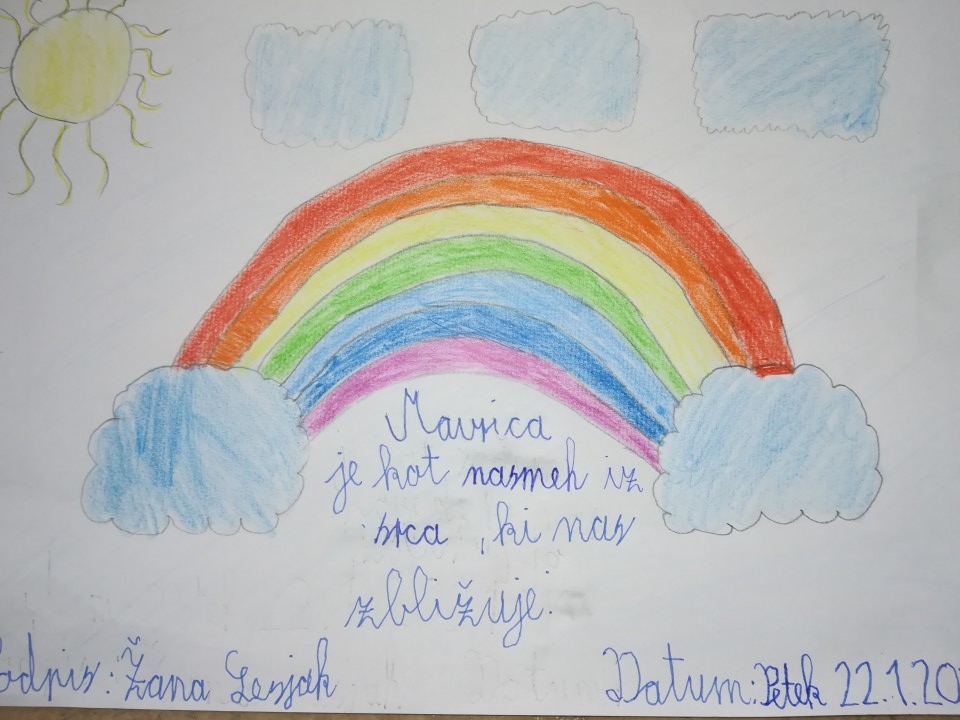 Mavrica
je kot nasmeh iz
srca , ki nas
zbližuje.
Podpis: Žana Lesjak
Datum: Petek 22.1.20